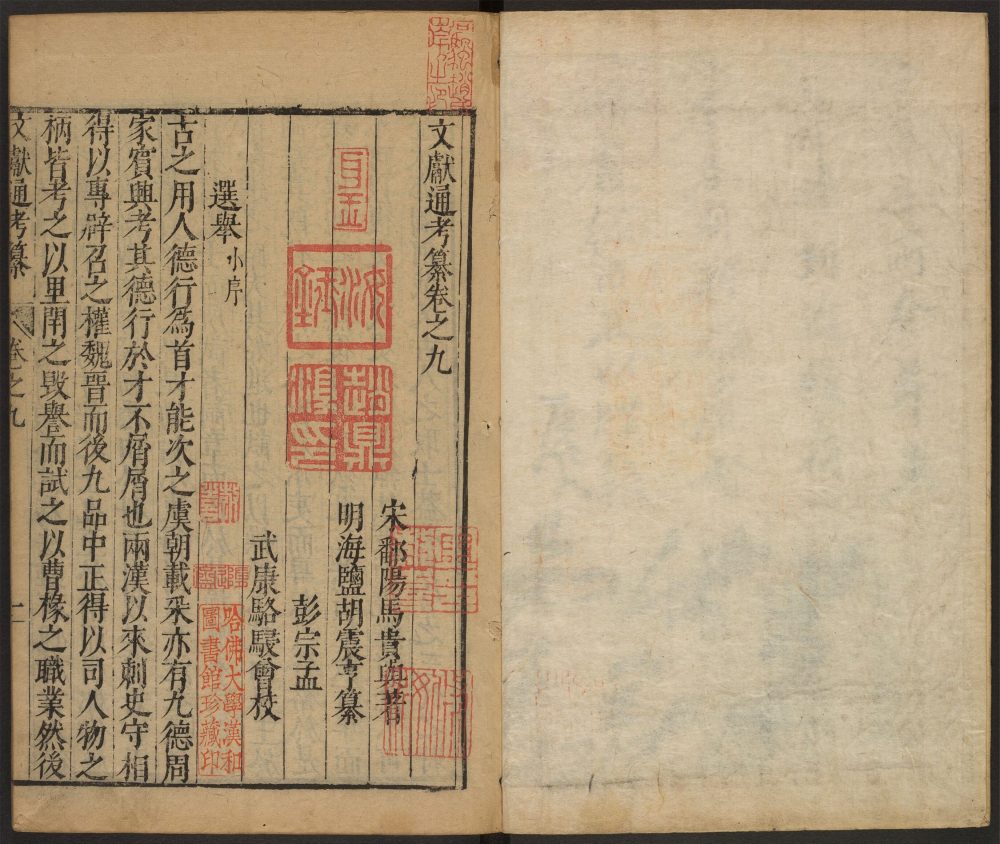 文獻通考纂卷之九
宋鄱陽馬貴與著
明海鹽胡震亨纂
彭宗孟
武康駱駸曾校
選舉小序
古之用人德行爲首才能次之虞朝載采亦有九德周
家賓興考其德行於才不屑屑也兩漢以來刺史守相
得以專辟召之權魏晉而後九品中正得以司人物之
柄皆考之以里閈之毀譽而試之以曹椽之職業然後
文獻通考纂 卷之九 一
哈佛大學漢和
圖書館珍藏印